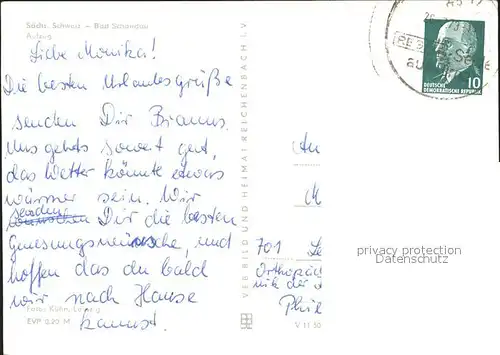 Sächs. Schweiz – Bad Schandau
Aufzug
Liebe Monika!
Die besten Urlaubsgrüße
senden Dir Brauns.
Uns gehts soweit gut,
das Wetter könnte etwas
wärmer sein. Wir
senden
wünschen Dir die besten
Genesungswünsche, und
hoffen das du bald
wir nach Hause
kannst.
Foto: Kühn, Leipzig
EVP 0,20 M
VEB BILD UND HEIMAT REICHENBACH I. V.
DEUTSCHE
DEMOKRATISCHE REPUBLIK
10
An
701 Le
Orthopäd
nik der
Phil
V 11 50
privacy protection
Datenschutz